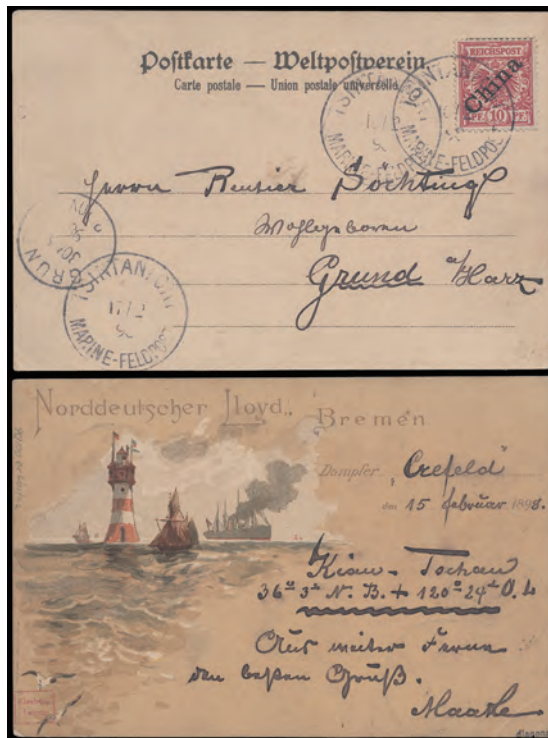 Postkarte — Weltpostverein.
Carte postale — Union postale universelle
REICHSPOST
China
10
TSINTANFORT
17/2
MARINE-FELDPOST
Herrn Rentier Söchting
Wohlgeboren
Grund a/Harz
GRUND
TSINTANFORT
17/2
MARINE-FELDPOST
Norddeutscher Lloyd, Bremen
Dampfer „Crefeld"
den 15 februar 1898.
Kiau-Tschau
36° 3' N. B. + 120° 24' O. L
Aus weiter Ferne
den besten Gruß.